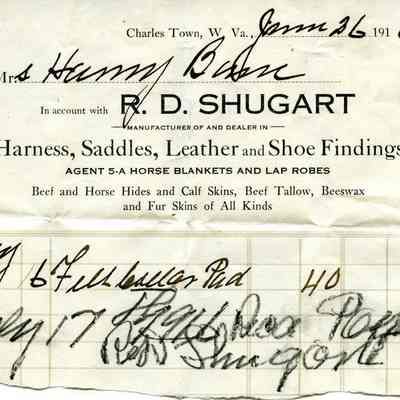 Charles Town, W. Va., June 26 191
Mrs Harry
In account with R. D. SHUGART
MANUFACTURER OF AND DEALER IN
Harness, Saddles, Leather and Shoe Findings
AGENT 5-A HORSE BLANKETS AND LAP ROBES
Beef and Horse Hides and Calf Skins, Beef Tallow, Beeswax
and Fur Skins of All Kinds
6 Felt Collar Pad 40
17
Shugart